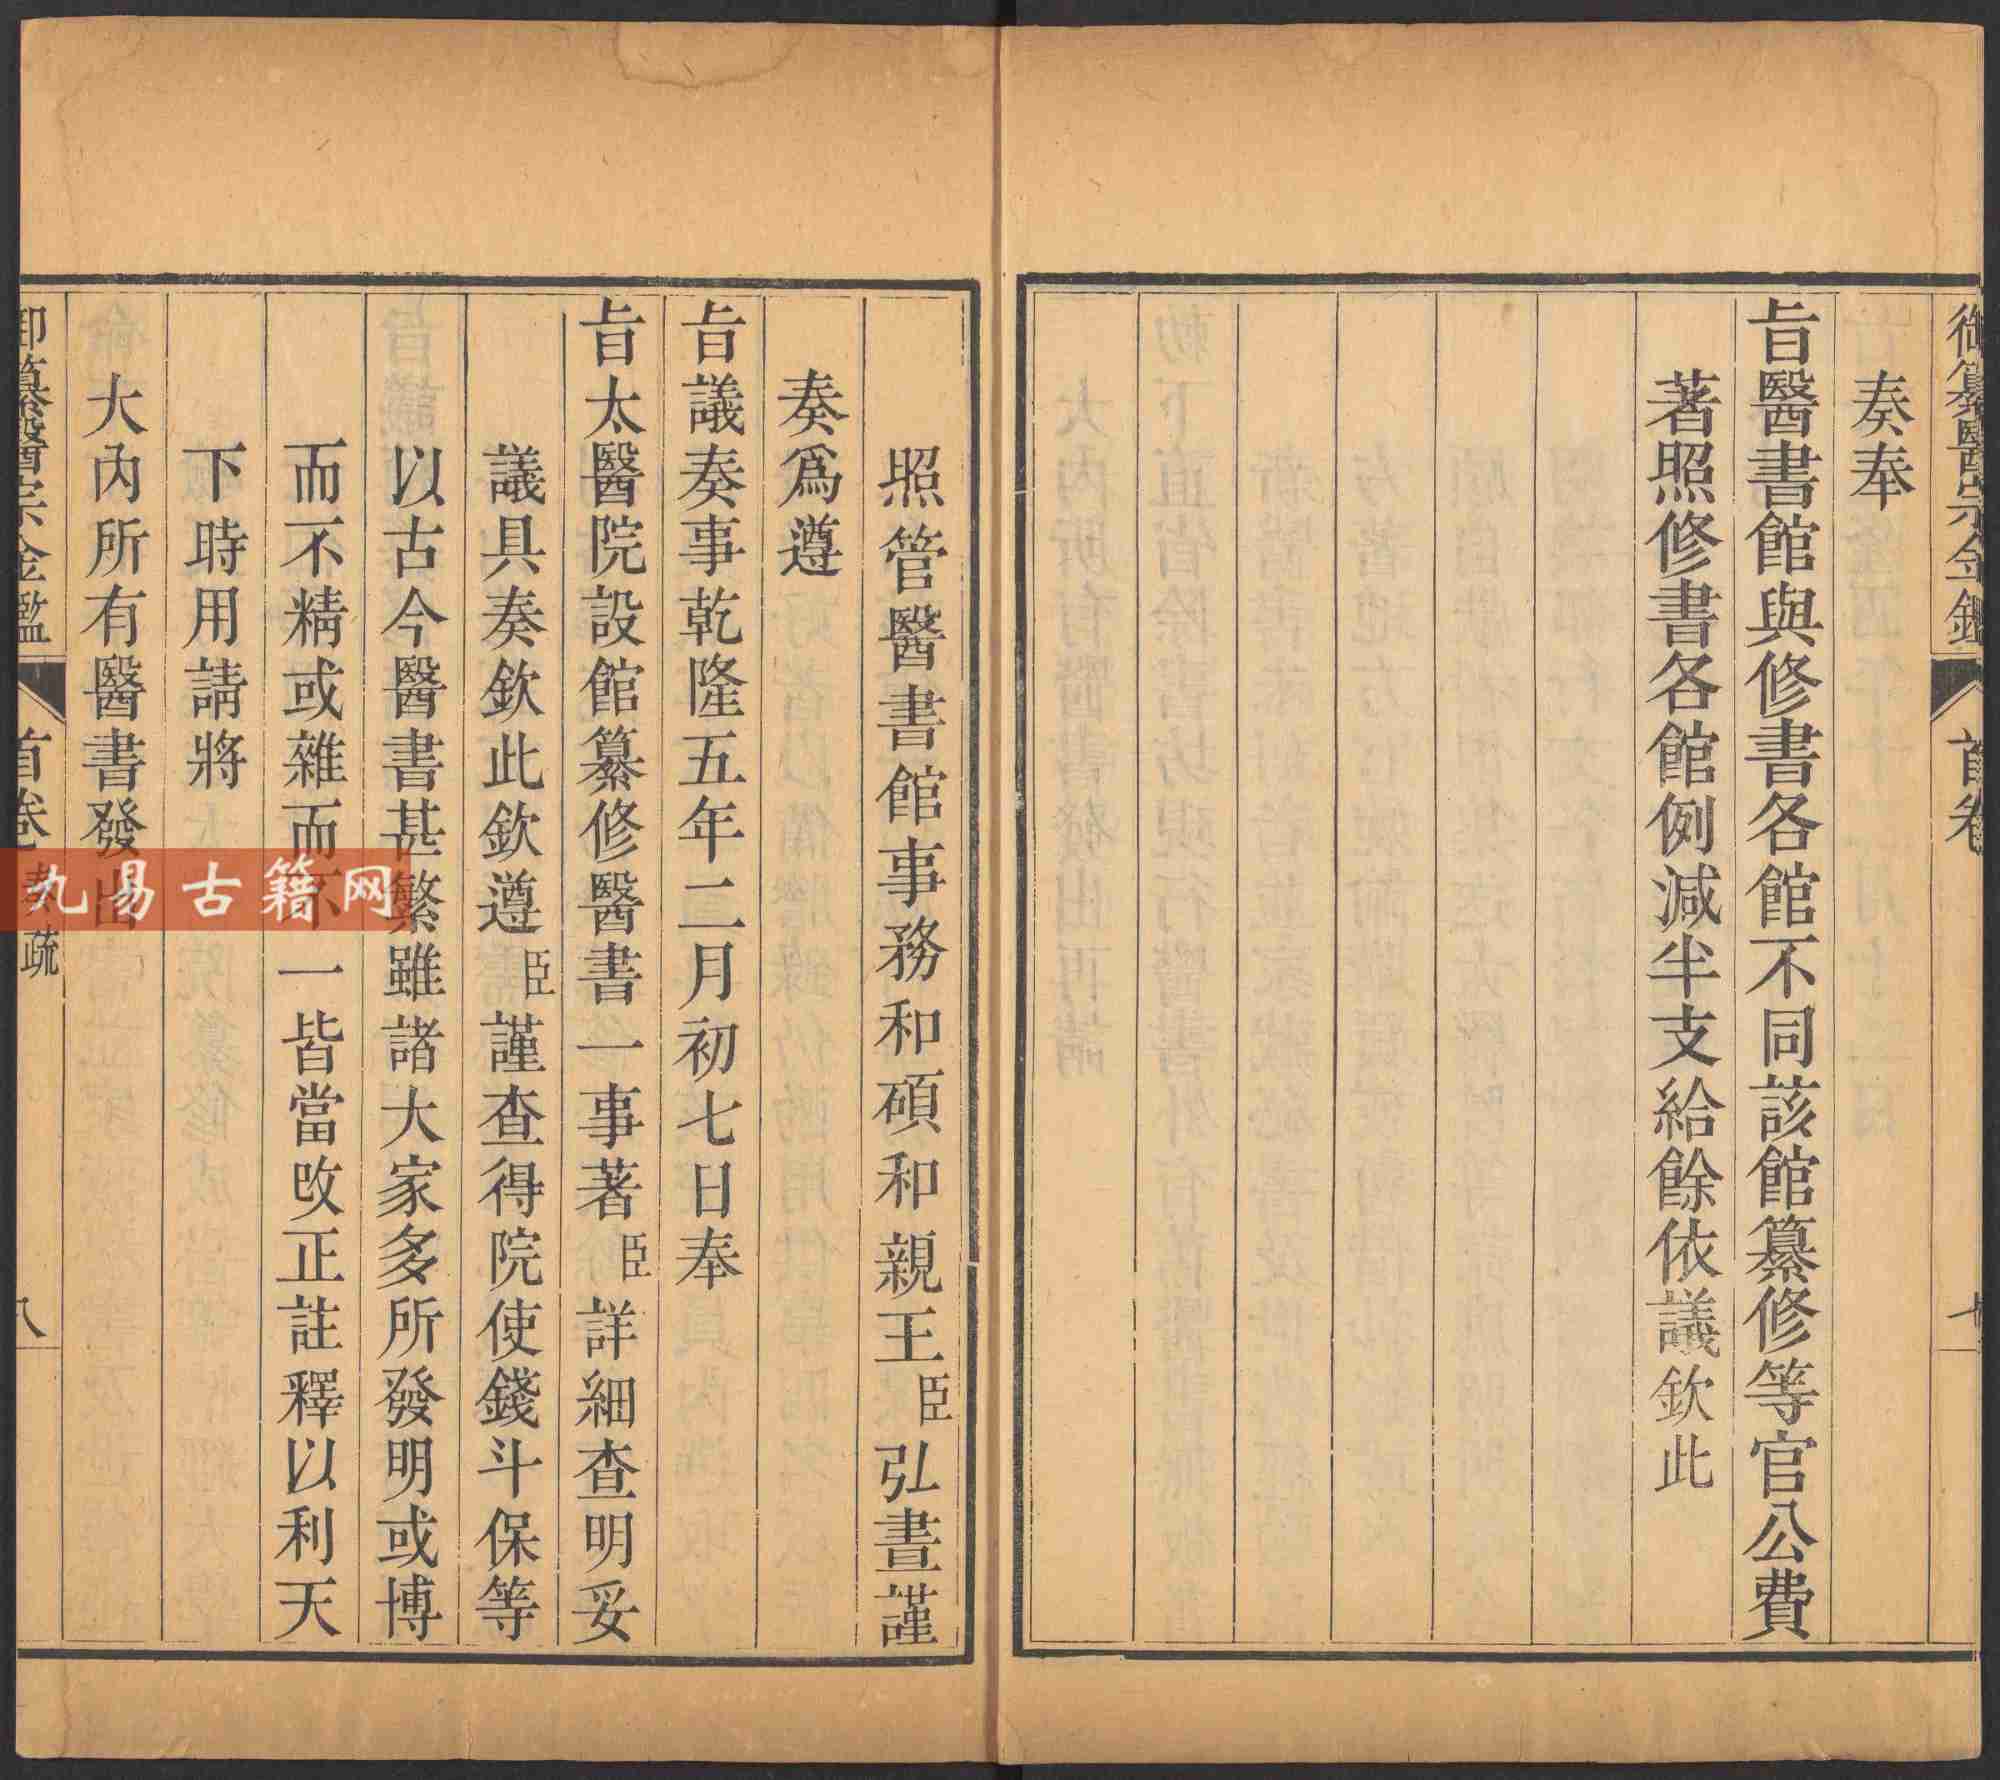 御纂醫宗金鑑 首卷 七
奏奉
旨醫書館與修書各館不同該館纂修等官公費
著照修書各館例減半支給餘依議欽此
照管醫書館事務和碩和親王臣弘晝謹
奏爲遵
旨議奏事乾隆五年二月初七日奉
旨太醫院設館纂修醫書一事著臣詳細查明妥
議具奏欽此欽遵臣謹查得院使錢斗保等
以古今醫書甚繁雖諸大家多所發明或博
而不精或雜而不一皆當攺正註釋以利天
下時用請將
大內所有醫書發出
御纂醫宗金鑑 首卷 奏疏 八
九易古籍网